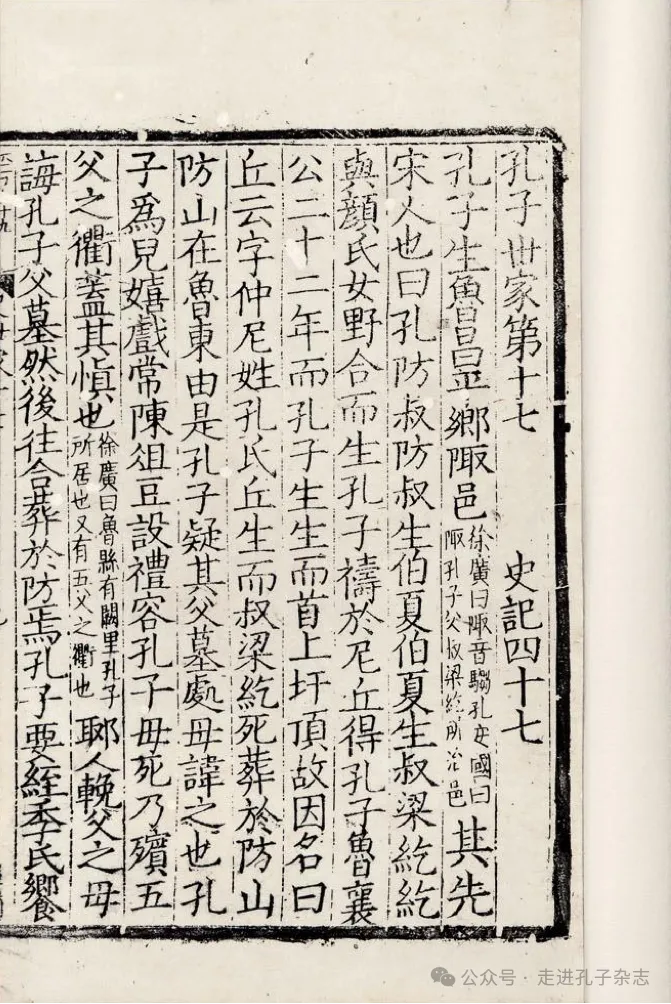 孔子世家第十七 史記四十七
孔子生魯昌平鄉陬邑徐廣曰陬音騶孔安國曰陬孔子父叔梁紇所治邑其先
宋人也曰孔防叔防叔生伯夏伯夏生叔梁紇紇
與顏氏女野合而生孔子禱於尼丘得孔子魯襄
公二十二年而孔子生生而首上圩頂故因名曰
丘云字仲尼姓孔氏丘生而叔梁紇死葬於防山
防山在魯東由是孔子疑其父墓處母諱之也孔
子爲兒嬉戲常陳俎豆設禮容孔子母死乃殯五
父之衢蓋其慎也徐廣曰魯縣有闕里孔子所居也又有五父之衢也郰人輓父之母
誨孔子父墓然後往合葬於防焉孔子要絰季氏饗
公众号 · 走进孔子杂志